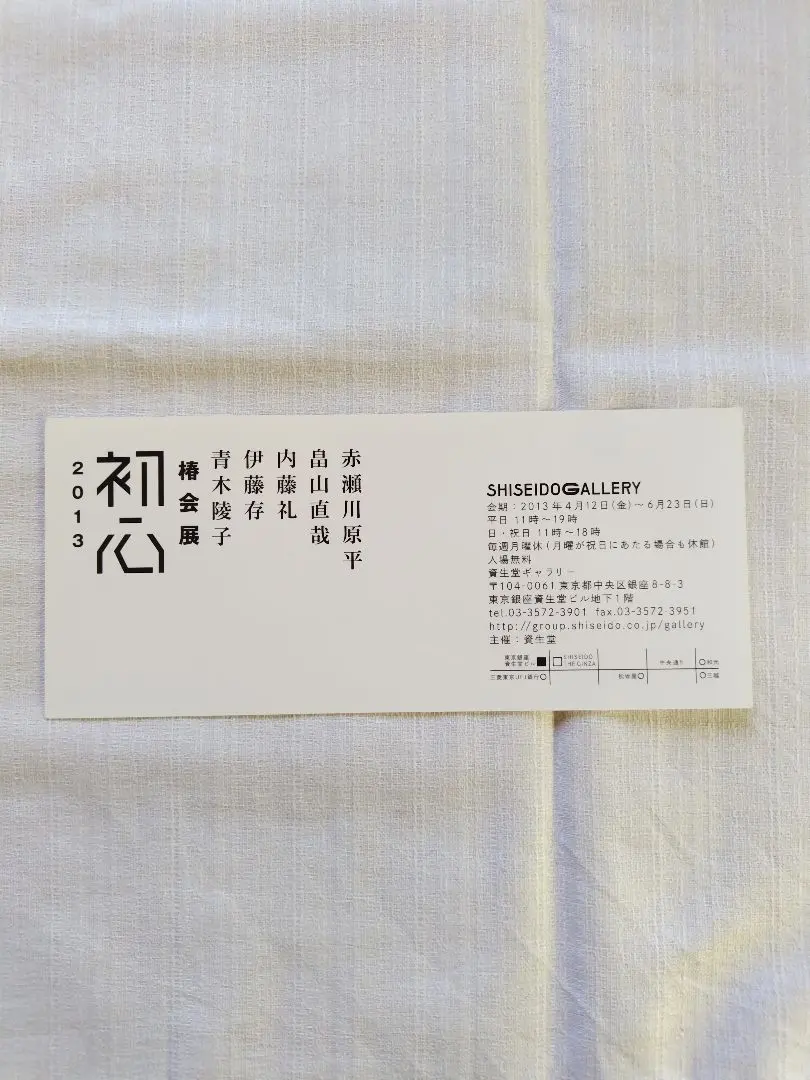 赤瀬川原平
畠山直哉
内藤礼
伊藤存
青木陵子
椿会展
初心
2013
SHISEIDO GALLERY
会期：2013年4月12日(金)〜6月23日(日)
平日 11時〜19時
日・祝日 11時〜18時
毎週月曜休(月曜が祝日にあたる場合も休館)
入場無料
資生堂ギャラリー
〒104-0061 東京都中央区銀座8-8-3
東京銀座資生堂ビル地下1階
tel.03-3572-3901 fax.03-3572-3951
http://group.shiseido.co.jp/gallery
主催：資生堂
東京銀座
資生堂ビル
SHISEIDO
THE GINZA
中央通り
和光
三菱東京UFJ銀行
松坂屋
三越